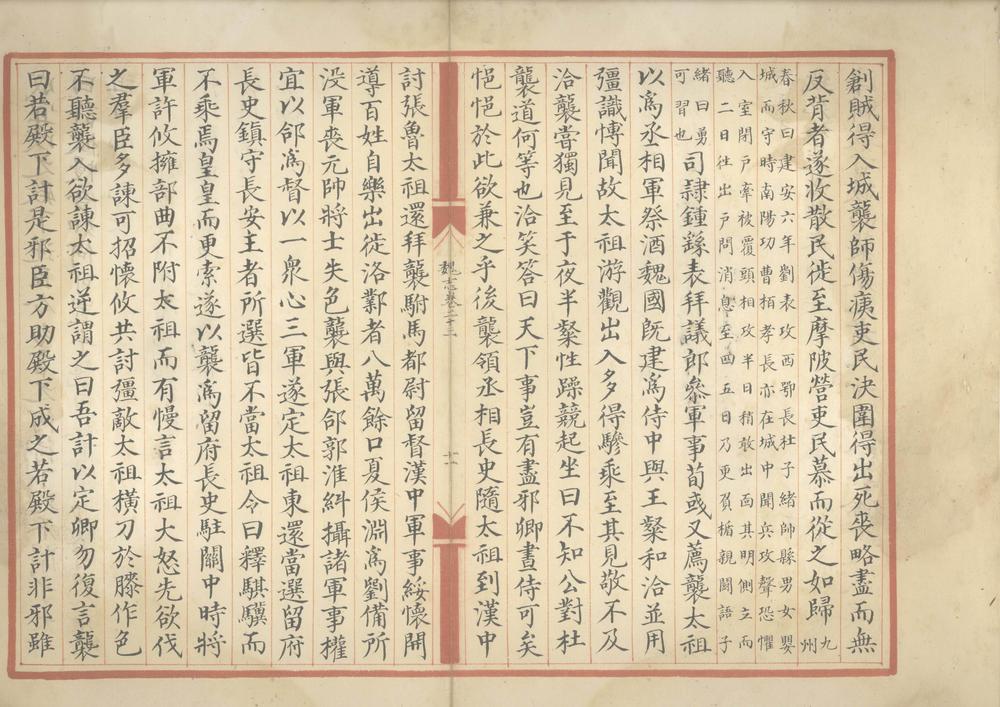 創賊得入城襲帥傷痍吏民決圍得出死喪略盡而無
反背者遂收散民徙至摩陂營吏民慕而從之如歸九
州
春秋曰建安六年劉表攻西鄂長杜子緒帥縣男女嬰
城而守時南陽功曹栢孝長亦在城中聞兵攻聲恐懼
入室閉戶牽被覆頭相攻半日稍敢出面其明側立而
聽二日往出戶問消息至四五日乃更負楯親鬪語子
緒曰勇
可習也司隷鍾繇表拜議郎參軍事荀彧又薦襲太祖
以爲丞相軍祭酒魏國旣建爲侍中與王粲和洽並用
彊識愽聞故太祖游觀出入多得驂乘至其見敬不及
洽襲嘗獨見至于夜半粲性躁競起坐曰不知公對杜
襲道何等也洽笑答曰天下事豈有盡邪卿晝侍可矣
悒悒於此欲兼之乎後襲領丞相長史隨太祖到漢中
魏志卷二十三
十一
討張魯太祖還拜襲駙馬都尉留督漢中軍事綏懷開
導百姓自樂出徙洛鄴者八萬餘口夏侯淵爲劉備所
没軍喪元帥將士失色襲與張郃郭淮糾攝諸軍事權
宜以郃爲督以一衆心三軍遂定太祖東還當選留府
長史鎮守長安主者所選皆不當太祖令曰釋騏驥而
不乘焉皇皇而更索遂以襲爲留府長史駐關中時將
軍許攸擁部曲不附太祖而有慢言太祖大怒先欲伐
之羣臣多諫可招懷攸共討彊敵太祖橫刀於膝作色
不聽襲入欲諫太祖逆謂之曰吾計以定卿勿復言襲
曰若殿下計是邪臣方助殿下成之若殿下計非邪雖